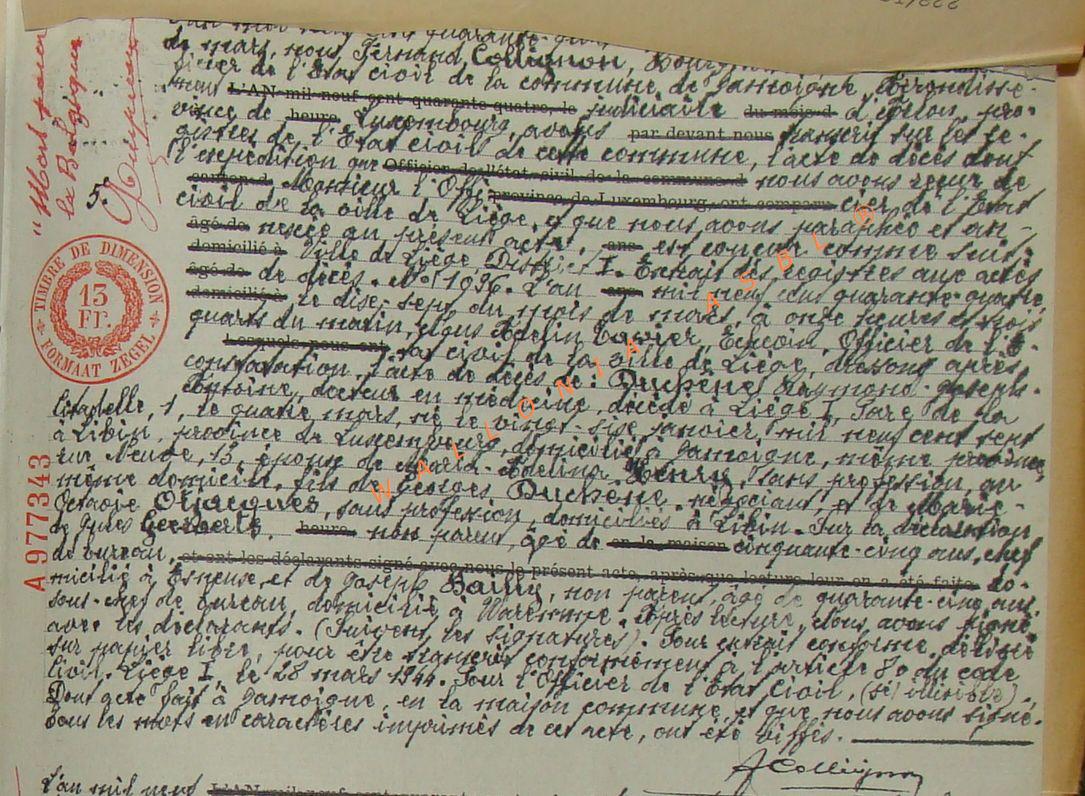 "Mort pour
la Belgique"
5.
TIMBRE DE DIMENSION
13
FR.
FORMAAT ZEGEL
A977343
L'an mil neuf cent quarante-
de mars, nous Fernand Collignon,
ficier de l'Etat civil de la commune de Jamoigne, Arrondisse-
ment L'AN mil neuf cent quarante quatre, le judiciaire du mois d d'Arlon, pro-
vince de heure Luxembourg, avons par devant nous transcrit sur les re-
gistres de l'Etat civil de cette commune, l'acte de décès dont
l'expédition que Officier de l'état civil de la commune d nous avons reçue de
Monsieur l'Offi province de Luxembourg, ont comparu cier de l'Etat
civil de la ville de Liège, et que nous avons paraphée et an-
âgé de nexée au présent acte, ans est conçue comme suit:
domicilié à Ville de Liège, District I. Extrait des registres aux actes
âgé de de décès. N° 1036. L'an ans mil neuf cent quarante-quatre,
domicilié à le dix-sept du mois de mars, à onze heures et trois
quarts du matin, Nous Xavier, Echevin, Officier de l'E-
Lesquels nous ont tat civil de la ville de Liège, dressons après
constatation, l'acte de décès de: Duchêne, Raymond-Joseph-
Antoine, docteur en médecine, décédé à Liège, rue de la
Citadelle, 1, le quatre mars, né le vingt-six janvier mil neuf cent sept
à Libin, province de Luxembourg, domicilié à Jamoigne, même province,
rue Neuve, 13, époux de Maria- Henry, sans profession, au
même domicile, fils de Georges Duchêne, négociant, et de Marie-
Octavie Ojacques, sans profession, domiciliés à Libin. Sur la déclaration
de Jules heure non parent, âgé de en la maison cinquante-cinq ans, chef
de bureau, et ont les déclarants signé avec nous le présent acte, après que lecture leur en a été faite do-
micilié à Esneux, et de Joseph Bailly, non parent, âgé de quarante-cinq ans,
sous-chef de bureau, domicilié à Waremme. Après lecture, Nous avons signé
avec les déclarants. (Suivent les signatures). Pour extrait conforme délivré
sur papier libre, pour être transcrit conformément à l'article 80 du code
civil. Liège I, le 28 mars 1944. Pour l'Officier de l'Etat Civil, (sé) illisible).
Dont acte fait à Jamoigne, en la maison commune, et que nous avons signé.
Tous les mots en caractères imprimés de cet acte, ont été biffés.
F Collignon
L'an mil neuf L'AN mil neuf cent quarante
WALLONIA ASBL ®